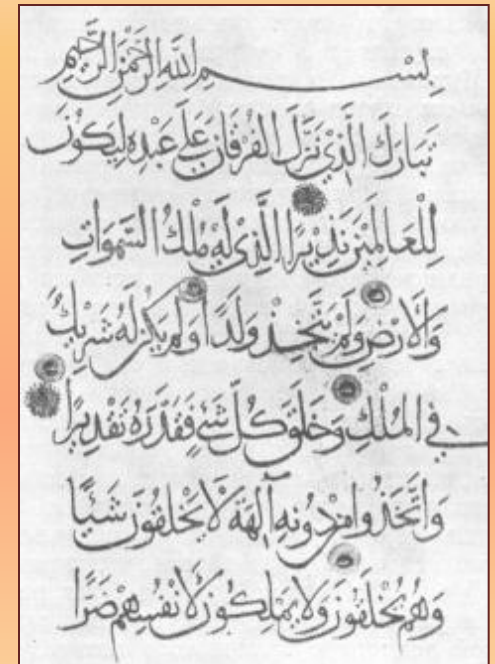 بِسْمِ اللَّهِ الرَّحْمَنِ الرَّحِيمِ
تَبَارَكَ الَّذِي نَزَّلَ الفُرْقَانَ عَلَى عَبْدِهِ لِيَكُونَ
لِلْعَالَمِينَ نَذِيرًا الَّذِي لَهُ مُلْكُ السَّمَوَاتِ
وَالْأَرْضِ وَلَمْ يَتَّخِذْ وَلَدًا وَلَمْ يَكُنْ لَهُ شَرِيكٌ
فِي الْمُلْكِ وَخَلَقَ كُلَّ شَيْءٍ فَقَدَّرَهُ تَقْدِيرًا
وَاتَّخَذُوا مِنْ دُونِهِ آلِهَةً لَا يَخْلُقُونَ شَيْئًا
وَهُمْ يُخْلَقُونَ وَلَا يَمْلِكُونَ لِأَنْفُسِهِمْ ضَرًّا